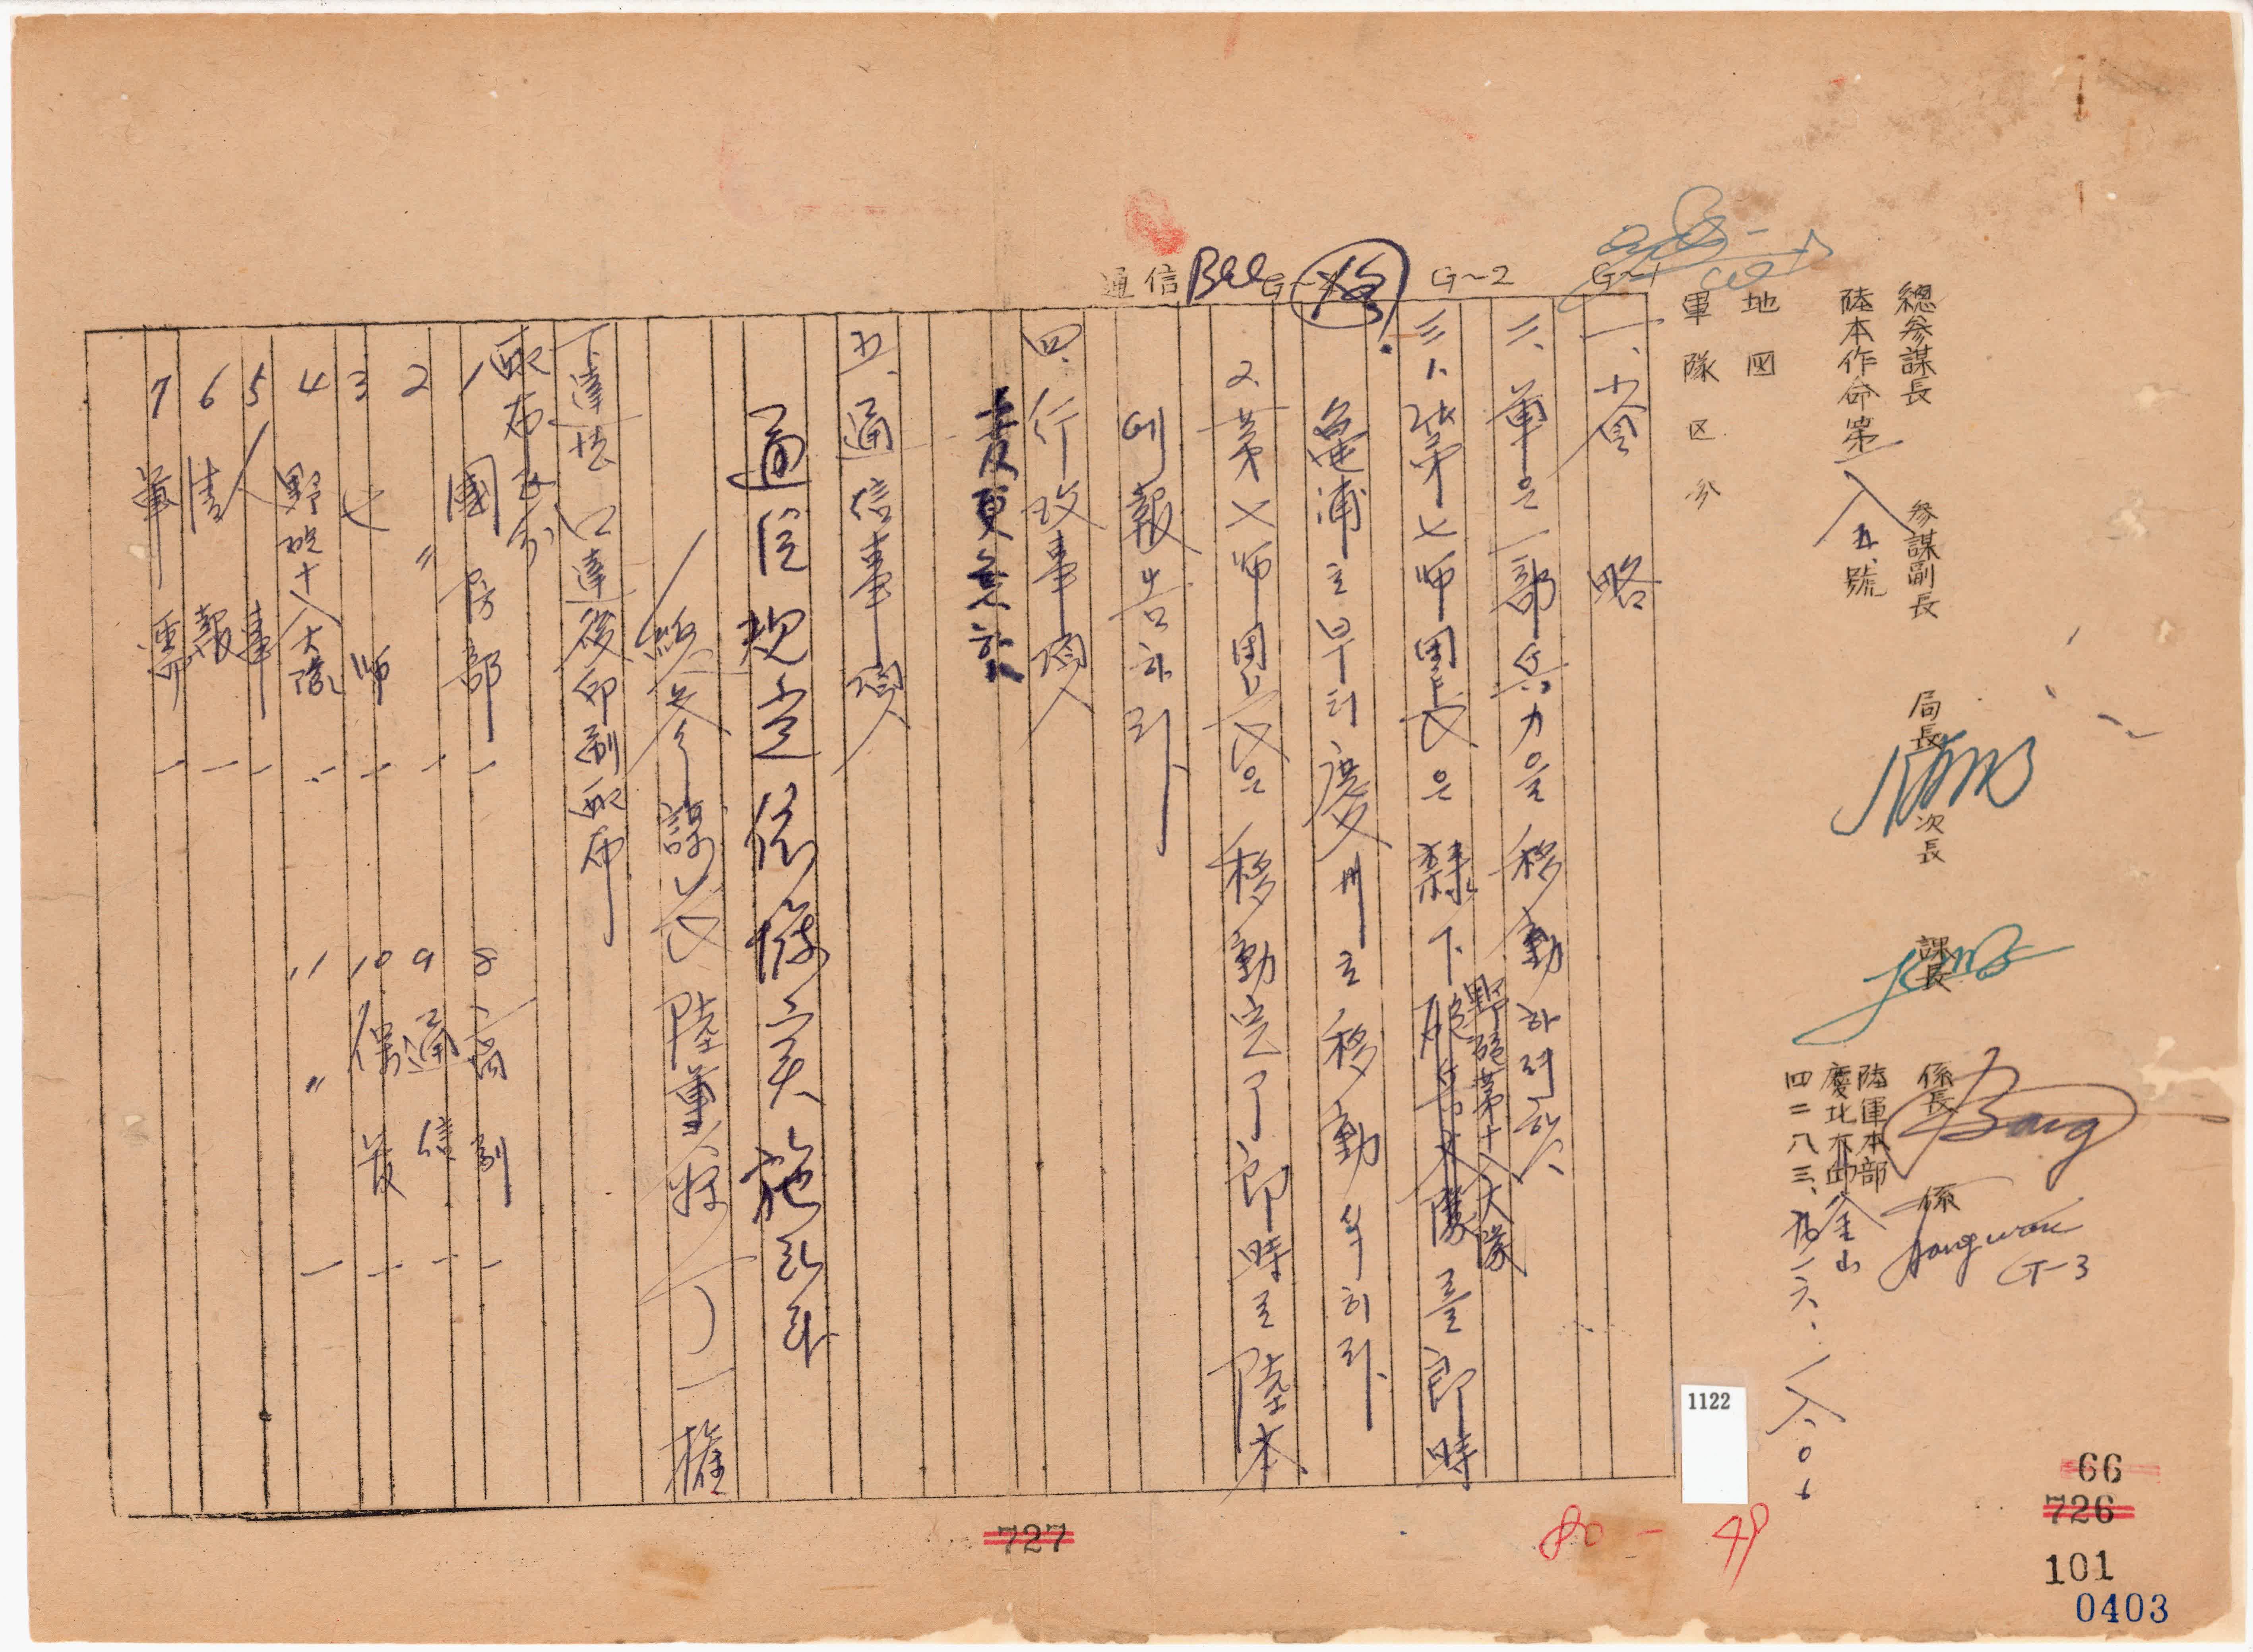 總參謀長 參謀副長 局長 次長 課長 係長 係
Bang
Jangwon
G-3
陸本作命第八五號
陸軍本部
慶北大邱 釜山
四二八三、九、一六、一八、〇〇
地図
軍隊区分
G~1
G~2
通信
一、命 略
二、軍은 一部 兵力을 移動하려 함
三、1、第七師団長은 隷下 砲兵大隊 野砲第十八大隊를 即時
龜浦로부터 慶州로 移動식히라
2、第七師団長은 移動完了 即時로 陸本
에 報告하라
四、行政事項
變更無함
五、通信事項
通信規定依據 施하라
總參謀長 陸軍少將 丁一權
下達法 口達後印刷配布
配布区分
1 國防部 一
2 〃 一
3 七師 一
4 野砲十八大隊 一
5 人事 一
6 情報 一
7 軍需 一
8 高副 一
9 通信 一
10 一
11 〃 一
1122
80-49
727
66
726
101
0403